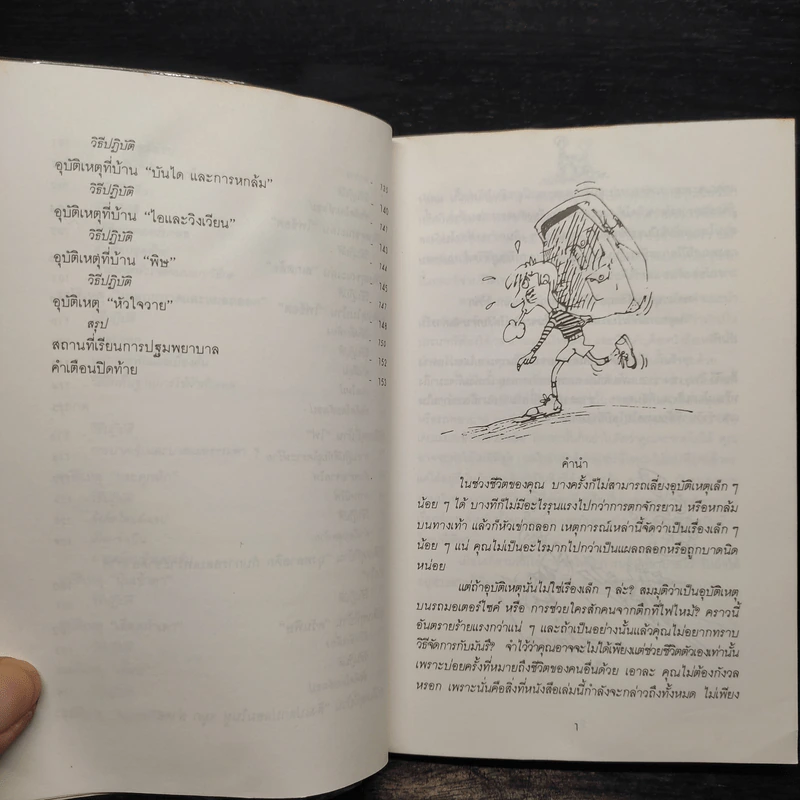 วิธีปฏิบัติ
อุบัติเหตุที่บ้าน “บันได และการหกล้ม” - 139
วิธีปฏิบัติ - 140
อุบัติเหตุที่บ้าน “ไอและวิงเวียน” - 141
วิธีปฏิบัติ - 143
อุบัติเหตุที่บ้าน “พิษ” - 144
วิธีปฏิบัติ - 145
อุบัติเหตุ “หัวใจวาย” - 147
สรุป - 148
สถานที่เรียนการปฐมพยาบาล - 150
คำเตือนปิดท้าย - 152
- 153
คำนำ
ในช่วงชีวิตของคุณ บางครั้งก็ไม่สามารถเลี่ยงอุบัติเหตุเล็ก ๆ
น้อย ๆ ได้ บางทีก็ไม่มีอะไรรุนแรงไปกว่าการตกจักรยาน หรือหกล้ม
บนทางเท้า แล้วก็หัวเข่าถลอก เหตุการณ์เหล่านี้จัดว่าเป็นเรื่องเล็ก ๆ
น้อย ๆ แน่ คุณไม่เป็นอะไรมากไปกว่าเป็นแผลถลอกหรือถูกบาดนิด
หน่อย
แต่ถ้าอุบัติเหตุนั่นไม่ใช่เรื่องเล็ก ๆ ล่ะ? สมมุติว่าเป็นอุบัติเหตุ
บนรถมอเตอร์ไซค์ หรือ การช่วยใครสักคนจากตึกที่ไฟไหม้? คราวนี้
อันตรายร้ายแรงกว่าแน่ ๆ และถ้าเป็นอย่างนั้นแล้วคุณไม่อยากทราบ
วิธีจัดการกับมันรึ? จำไว้ว่าคุณอาจจะไม่ได้เพียงแต่ช่วยชีวิตตัวเองเท่านั้น
เพราะบ่อยครั้งที่หมายถึงชีวิตของคนอื่นด้วย เอาละ คุณไม่ต้องกังวล
หรอก เพราะนั่นคือสิ่งที่หนังสือเล่มนี้กำลังจะกล่าวถึงทั้งหมด ไม่เพียง
1